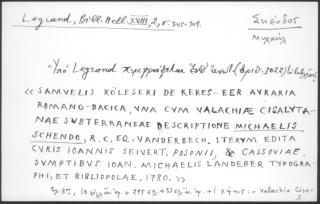 Legrand, Bibl. Hell. XVIII, 2, σ. 345-349.
Σκένδος
Μιχαήλ
Ὑπὸ Legrand περιγράφεται
«SAMVELIS KÖLESERI DE KERES-EER AVRARIA
ROMANO-DACICA, VNA CVM VALACHIAE CISALVTA-
NAE SVBTERRANEAE DESCRIPTIONE MICHAELIS
SCHENDO, R.C. EQ. VANDERBECH, ITERVM EDITA
CVRIS IOANNIS SEIVERT, POSONII, & CASSOVIAE.
SVMPTIBVS IOAN. MICHAELIS LANDERER TYPOGRA-
PHI, ET BIBLIOPOLAE, 1780.»
Valachia Cisa-